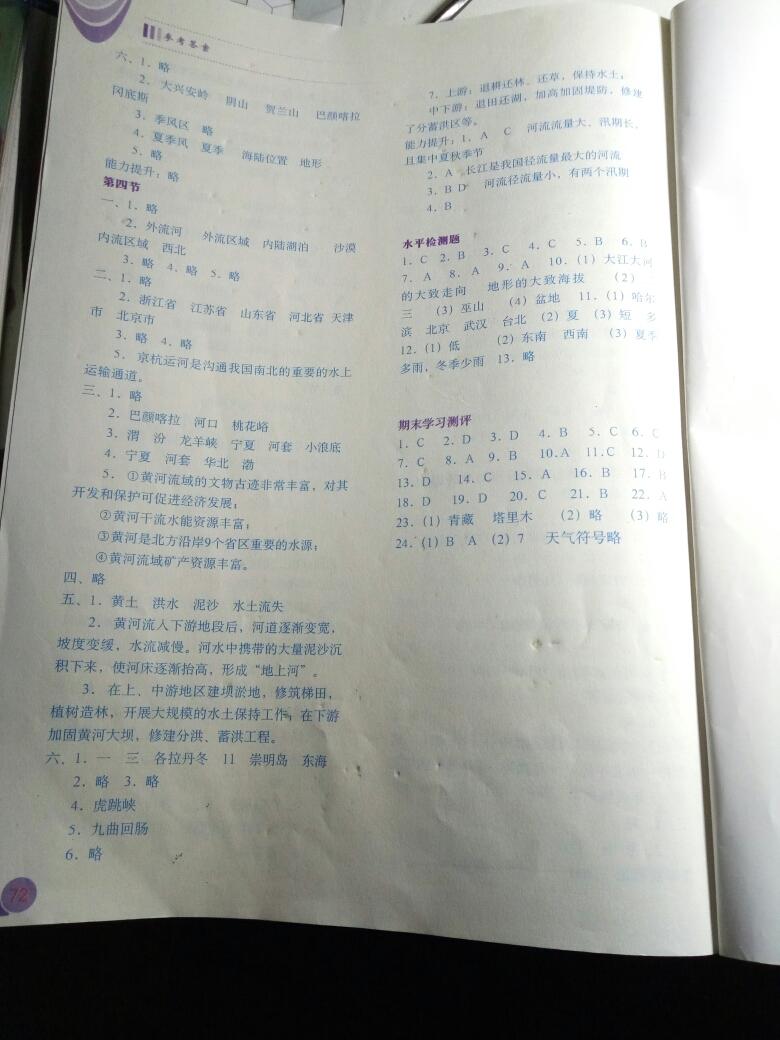 参考答案
六、1．略
2．大兴安岭 阴山 贺兰山 巴颜喀拉
冈底斯
3．季风区 略
4．夏季风 夏季 海陆位置 地形
5．略
能力提升：略
第四节
一、1．略
2．外流河 外流区域 内陆湖泊 沙漠
内流区域 西北
3．略 4．略 5．略
二、1．略
2．浙江省 江苏省 山东省 河北省 天津
市 北京市
3．略 4．略
5．京杭运河是沟通我国南北的重要的水上
运输通道。
三、1．略
2．巴颜喀拉 河口 桃花峪
3．渭 汾 龙羊峡 宁夏 河套 小浪底
4．宁夏 河套 华北 渤
5．①黄河流域的文物古迹非常丰富，对其
开发和保护可促进经济发展；
②黄河干流水能资源丰富；
③黄河是北方沿岸9个省区重要的水源；
④黄河流域矿产资源丰富。
四、略
五、1．黄土 洪水 泥沙 水土流失
2．黄河流入下游地段后，河道逐渐变宽，
坡度变缓，水流减慢。河水中携带的大量泥沙沉
积下来，使河床逐渐抬高，形成“地上河”。
3．在上、中游地区建坝淤地，修筑梯田，
植树造林，开展大规模的水土保持工作；在下游
加固黄河大坝，修建分洪、蓄洪工程。
六、1．一 三 各拉丹冬 11 崇明岛 东海
2．略 3．略
4．虎跳峡
5．九曲回肠
6．略
72
7．上游：退耕还林、还草，保持水土；
中下游：退田还湖，加高加固堤防，修建
了分蓄洪区等。
能力提升：1．A C 河流流量大、汛期长、
且集中夏秋季节
2．A 长江是我国径流量最大的河流
3．B D 河流径流量小，有两个汛期
4．B
水平检测题
1．C 2．B 3．C 4．C 5．B 6．B
7．A 8．A 9．A 10．(1) 大江大河
的大致走向 地形的大致海拔 (2) 一
三 (3) 巫山 (4) 盆地 11．(1) 哈尔
滨 北京 武汉 台北 (2) 夏 (3) 短 多
12．(1) 低 (2) 东南 西南 (3) 夏季
多雨，冬季少雨 13．略
期末学习测评
1．C 2．D 3．D 4．B 5．C 6．C
7．C 8．A 9．B 10．A 11．C 12．D
13．D 14．C 15．A 16．B 17．B
18．D 19．D 20．C 21．B 22．A
23．(1) 青藏 塔里木 (2) 略 (3) 略
24．(1) B A (2) 7 天气符号略